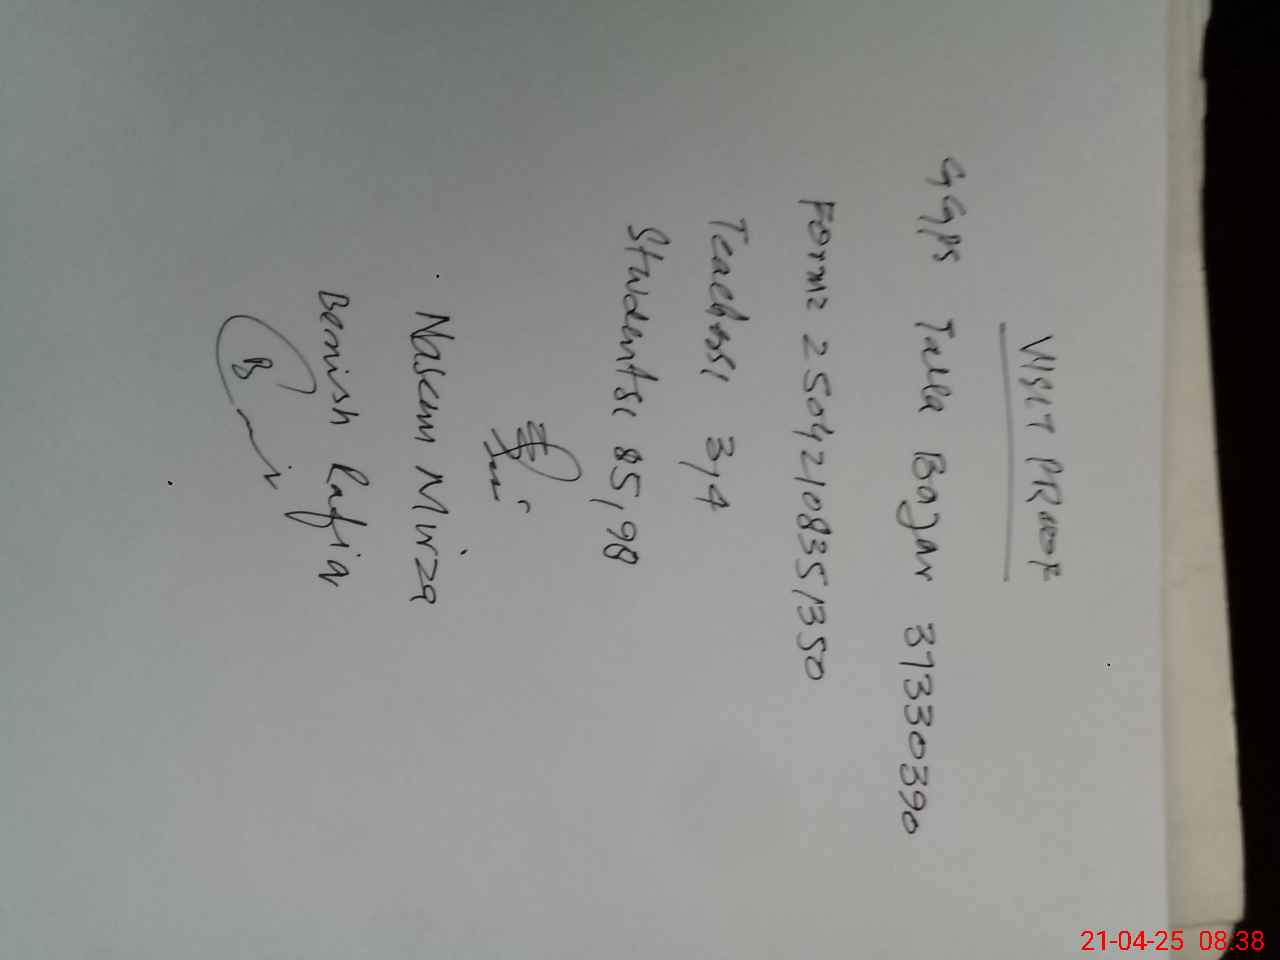 VISIT PROOF
GGPS Talla Bajar 37330390
Form: 25042108351350
Teachers: 3,4
Students: 85,98
Naseem Mirza
Beenish Rafiq
B
21-04-25 08:38